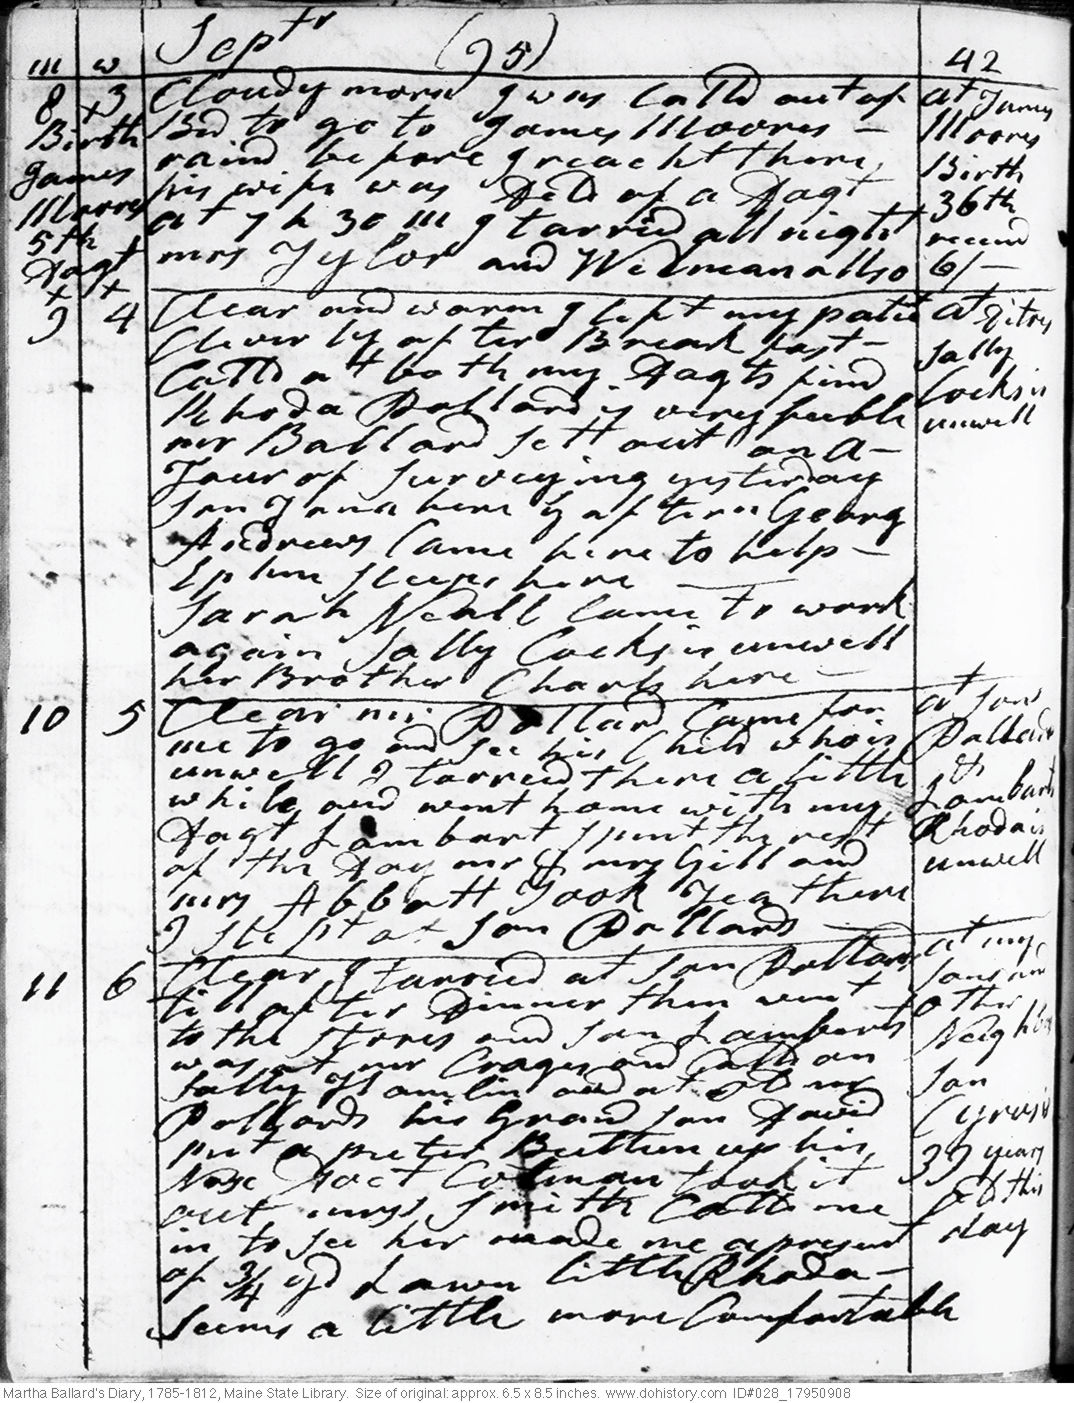 m w Septr (95) 42
8 x3 Cloudy morn I was Calld out of
Bed to go to James Moores –
raind before I reacht there,
his wife was Deld of a Dagt
at 7 h 30 m I tarried all night
mrs Tylor and Wilman allso
Birth
James
Moores
5th
Dagt
x x
at James
Moores
Birth
36th
receivd
6/–
9 4 Clear and warm I left my patient
Cleverly after Breakfast –
Calld att both my Dagts find
Rhoda Pollard is very feeble
mr Ballard sett out on a –
Tour of Surveying yesterday
son Jona here Georg
Andrews Came here to help –
Ephm sleeps here
Sarah Neall Came to work
again Sally Cocks is unwell
her Brother Charls here –
at Pitts
Sally
Cocks is
unwell
10 5 Clear mr Pollard Came for
me to go and see his Child who is
unwell I tarried there a little
while and went home with my
Dagt Lambart spent the rest
of the Day mr & mrs Gill and
mrs Abbott Took Tea there
I slept at Son Pollards
at son
Pollards
Lambarts
Rhoda is
unwell
11 6 Clear I tarried at son Pollards
till after Dinner then went
to the stores and son Lambarts
was at mr Crages and Calld on
Sally Hamlin and at Old mr
Pollards his Grand son David
put a puter Buttun up his
Nose Doct Colman took it
out mrs Smith Calld me
in to see her made me a present
of 3/4 yd Lawn little Rhoda –
seems a little more Comfortable
at my
sons and
other
Neighbors
son
Cyrus is
39 years
old this
day
Martha Ballard's Diary, 1785-1812, Maine State Library. Size of original: approx. 6.5 x 8.5 inches. www.dohistory.com ID#028_17950908